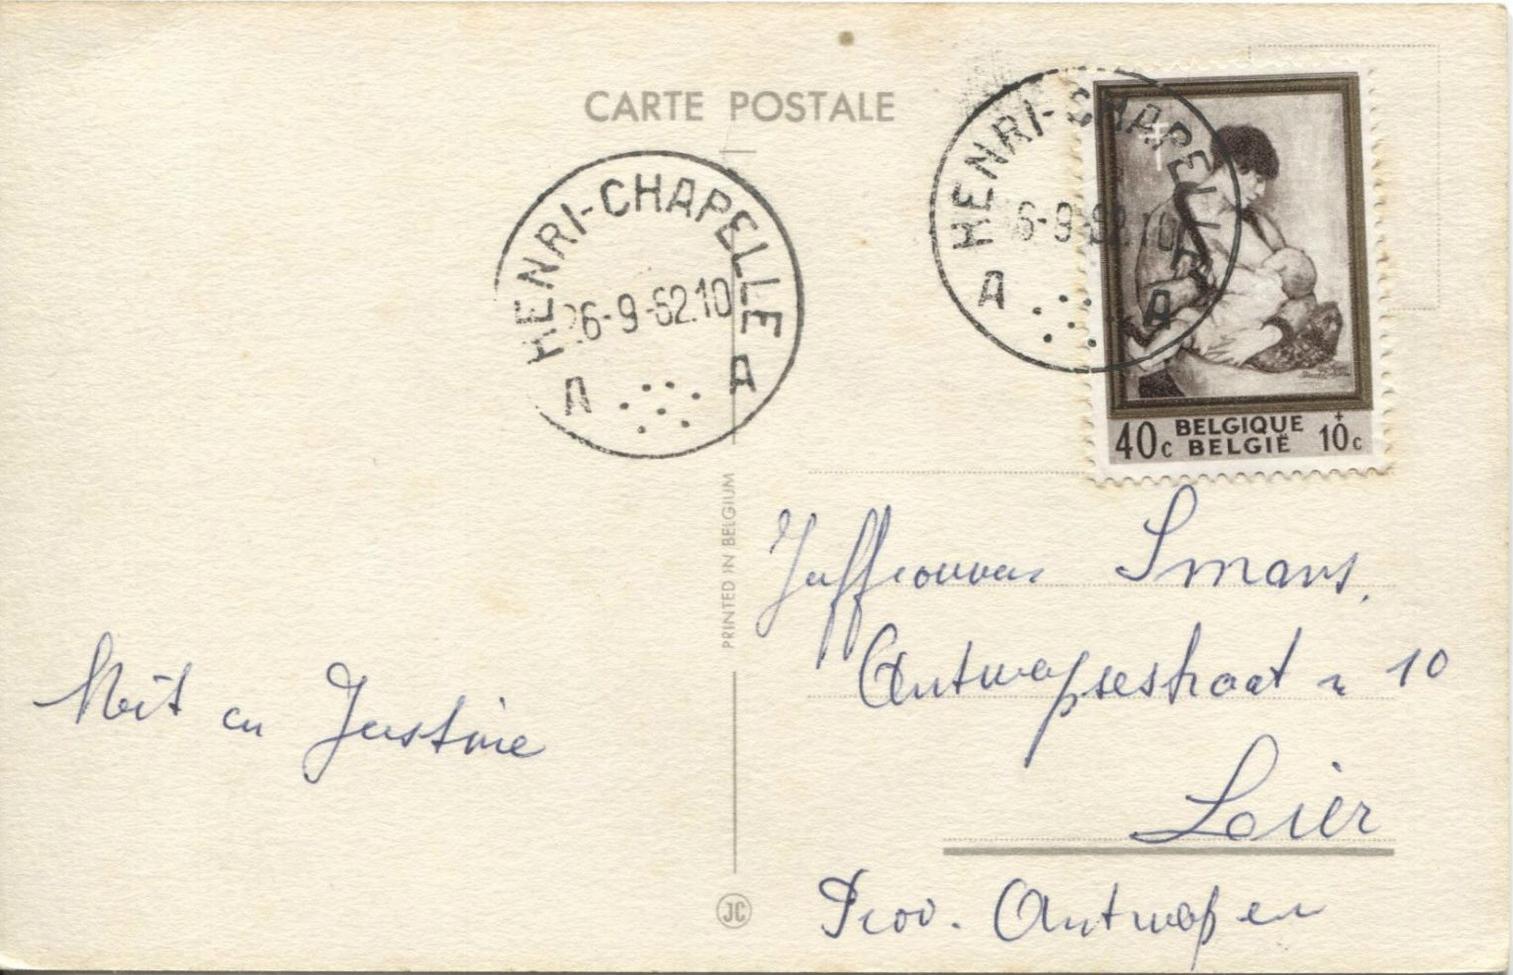 CARTE POSTALE
HENRI-CHAPELLE
26-9-62.10
A A
HENRI-CHAPELLE
26-9-62.10
A A
BELGIQUE
40c BELGIË +10c
PRINTED IN BELGIUM
Juffrouw Smans,
Antwerpsestraat n 10
Lier
Prov. Antwerpen
en Justine
JC